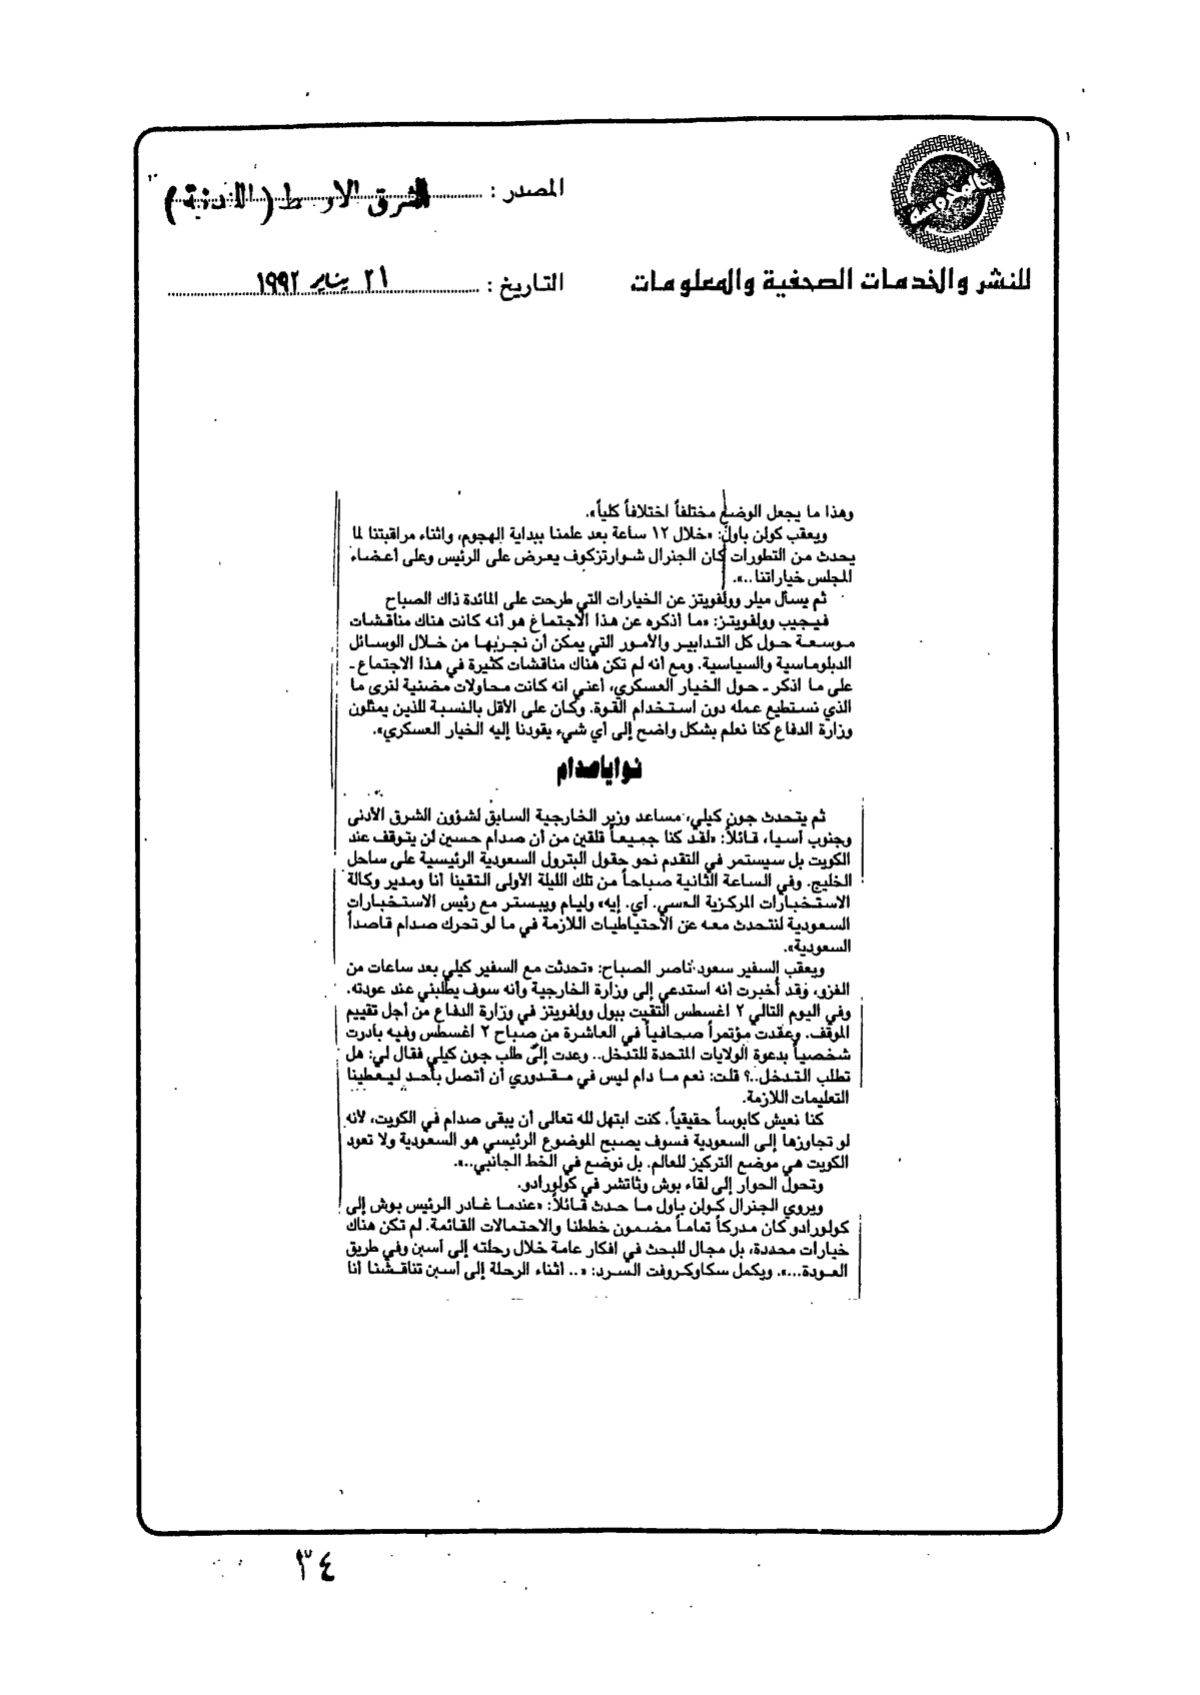 المصدر : الشرق الاوسط (اللندنية)
للنشر والخدمات الصحفية والمعلومات
التاريخ : ٢١ يناير ١٩٩٢
وهذا ما يجعل الوضع مختلفاً اختلافاً كلياً».
ويعقب كولن باول: «خلال ١٢ ساعة بعد علمنا ببداية الهجوم، واثناء مراقبتنا لما
يحدث من التطورات كان الجنرال شوارتزكوف يعرض على الرئيس وعلى أعضاء
المجلس خياراتنا..».
ثم يسأل ميلر وولفويتز عن الخيارات التي طرحت على المائدة ذاك الصباح
فيجيب وولفويتز: «ما اذكره عن هذا الاجتماع هو أنه كانت هناك مناقشات
موسعة حول كل التدابير والأمور التي يمكن أن نجربها من خلال الوسائل
الدبلوماسية والسياسية. ومع أنه لم تكن هناك مناقشات كثيرة في هذا الاجتماع -
على ما اذكر - حول الخيار العسكري، أعني انه كانت محاولات مضنية لنرى ما
الذي نستطيع عمله دون استخدام القوة. وكان على الأقل بالنسبة للذين يمثلون
وزارة الدفاع كنا نعلم بشكل واضح إلى أي شيء يقودنا إليه الخيار العسكري».
نوايا صدام
ثم يتحدث جون كيلي، مساعد وزير الخارجية السابق لشؤون الشرق الأدنى
وجنوب آسيا، قائلاً: «لقد كنا جميعاً قلقين من أن صدام حسين لن يتوقف عند
الكويت بل سيستمر في التقدم نحو حقول البترول السعودية الرئيسية على ساحل
الخليج. وفي الساعة الثانية صباحاً من تلك الليلة الأولى التقينا أنا ومدير وكالة
الاستخبارات المركزية الـ«سي. آي. إيه» وليام ويبستر مع رئيس الاستخبارات
السعودية لنتحدث معه عن الاحتياطيات اللازمة في ما لو تحرك صدام قاصداً
السعودية».
ويعقب السفير سعود ناصر الصباح: «تحدثت مع السفير كيلي بعد ساعات من
الغزو، وقد أخبرت أنه استدعي إلى وزارة الخارجية وأنه سوف يطلبني عند عودته.
وفي اليوم التالي ٢ اغسطس التقيت ببول وولفويتز في وزارة الدفاع من أجل تقييم
الموقف. وعقدت مؤتمراً صحافياً في العاشرة من صباح ٢ اغسطس وفيه بادرت
شخصياً بدعوة الولايات المتحدة للتدخل.. وعدت إلى طلب جون كيلي فقال لي: هل
تطلب التدخل..؟ قلت: نعم ما دام ليس في مقدوري أن أتصل بأحد ليعطينا
التعليمات اللازمة.
كنا نعيش كابوساً حقيقياً. كنت ابتهل لله تعالى أن يبقى صدام في الكويت، لأنه
لو تجاوزها إلى السعودية فسوف يصبح الموضوع الرئيسي هو السعودية ولا تعود
الكويت هي موضع التركيز للعالم. بل نوضع في الخط الجانبي..».
وتحول الحوار إلى لقاء بوش وثاتشر في كولورادو.
ويروي الجنرال كولن باول ما حدث قائلاً: «عندما غادر الرئيس بوش إلى
كولورادو كان مدركاً تماماً مضمون خططنا والاحتمالات القائمة. لم تكن هناك
خيارات محددة، بل مجال للبحث في افكار عامة خلال رحلته إلى آسبن وفي طريق
العودة...». ويكمل سكاوكروفت السرد: «.. أثناء الرحلة إلى آسبن تناقشنا أنا
٣٤